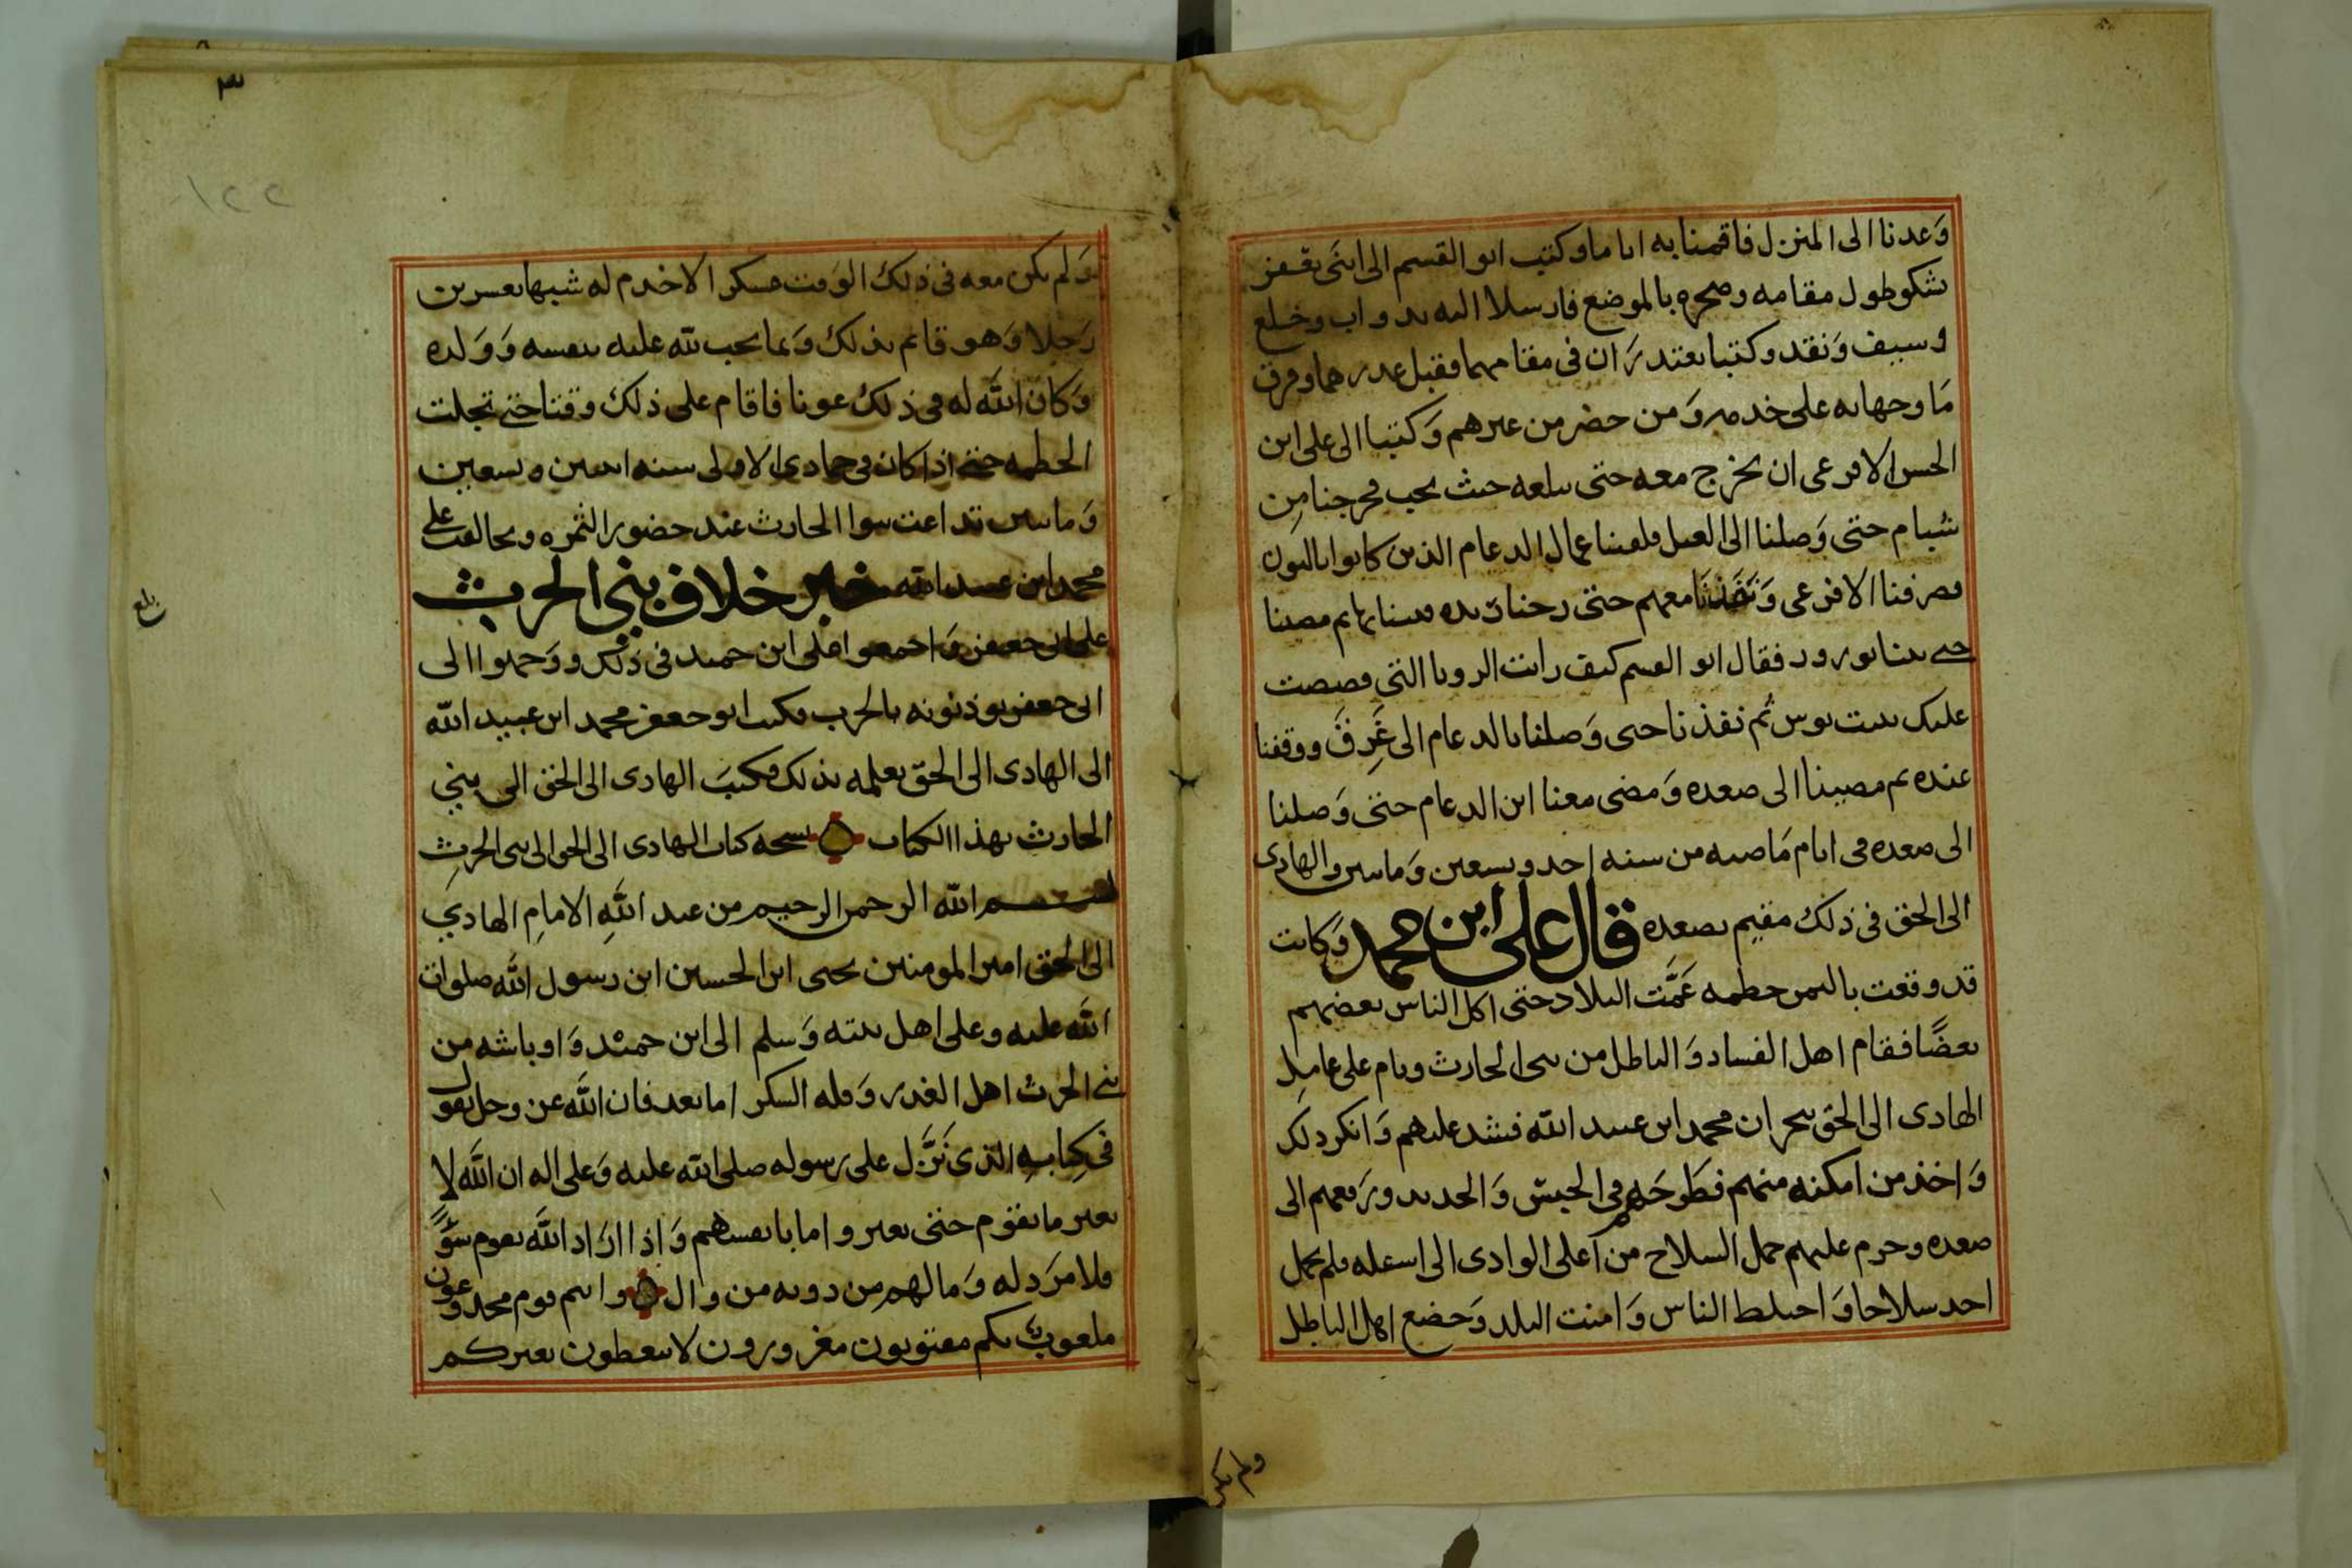 وعدنا الى المنزل فاقمنا به اياما وكتب ابو القسم الى ابنى يعفر
يشكو طول مقامه وضجره بالموضع فارسلا اليه بدواب وخلع
وسيف ونقد وكتبا يعتذران فى مقامهما فقبل عذرهما وفرق
ما وجها به على خدمه ومن حضر من غيرهم وكتبا الى على ابن
الحسن الاقرعى ان يخرج معه حتى يبلغه حيث يحب فخرجنا من
شبام حتى وصلنا الى الغيل فلقينا عمال الدعام الذين كانوا بالبون
فصرفنا الاقرعى ونفذنا معهم حتى دخنا ريده فبتنا بها ثم مضينا
حتى بتنا بورور فقال ابو القسم كيف رايت الرويا التى قصصت
عليك ببيت بوس ثم نفذنا حتى وصلنا بالدعام الى غرق ووقفنا
عنده ثم مضينا الى صعده ومضى معنا ابن الدعام حتى وصلنا
الى صعده فى ايام ماضيه من سنه احد وتسعين ومايتين والهادى
الى الحق فى ذلك مقيم بصعده قال على ابن محمد وكانت
قد وقعت باليمن حطمه عمت البلاد حتى اكل الناس بعضهم
بعضًا فقام اهل الفساد والباطل من بنى الحارث ويام على عامل
الهادى الى الحق بنجران محمد ابن عبيد الله فشد عليهم وانكر ذلك
واخذ من امكنه منهم فطرحهم فى الحبس والحديد ورفعهم الى
صعده وحرم عليهم حمل السلاح من اعلى الوادى الى اسفله فلم يحمل
احد سلاحا واختلط الناس وامنت البلد وخضع اهل الباطل
ولم يكن
٣
١٢٢
ولم يكن معه فى ذلك الوقت عسكر الا خدم له شبيها بعشرين
رجلا وهو قائم بذلك وبما يجب لله عليه بنفسه وولده
وكان الله له فى ذلك عونا فاقام على ذلك وقتا حتى تجلت
الحطمه حتى اذا كان فى جمادى الاولى سنه اثنين وتسعين
ومايتين تداعت بنوا الحارث عند حضور الثمره وتحالفت على
محمد ابن عبيد الله خبر خلاف بنى الحرث
على ابى جعفر واجمعوا على ابن حميد فى ذلك ووجهوا الى
ابى جعفر يوذنونه بالحرب فكتب ابو جعفر محمد ابن عبيد الله
الى الهادى الى الحق يعلمه بذلك فكتب الهادى الى الحق الى بنى
الحارث بهذا الكتاب نسخه كتاب الهادى الى الحق الى بنى الحرث
بسم الله الرحمن الرحيم من عبد الله الامام الهادي
الى الحق امير المومنين يحيى ابن الحسين ابن رسول الله صلوات
الله عليه وعلى اهل بيته وسلم الى ابن حميد واوباشه من
بنى الحرث اهل الغدر وقله الشكر اما بعد فان الله عز وجل يقول
فى كتابه الذى نزل على رسوله صلى الله عليه وعلى اله ان الله لا
يغير ما بقوم حتى يغيروا ما بانفسهم واذا اراد الله بقوم سوًا
فلا مرد له وما لهم من دونه من وال وانتم قوم مخدوعون
ملعوب بكم مفتونون مغرورون لا تتعظون بغيركم
بلغ